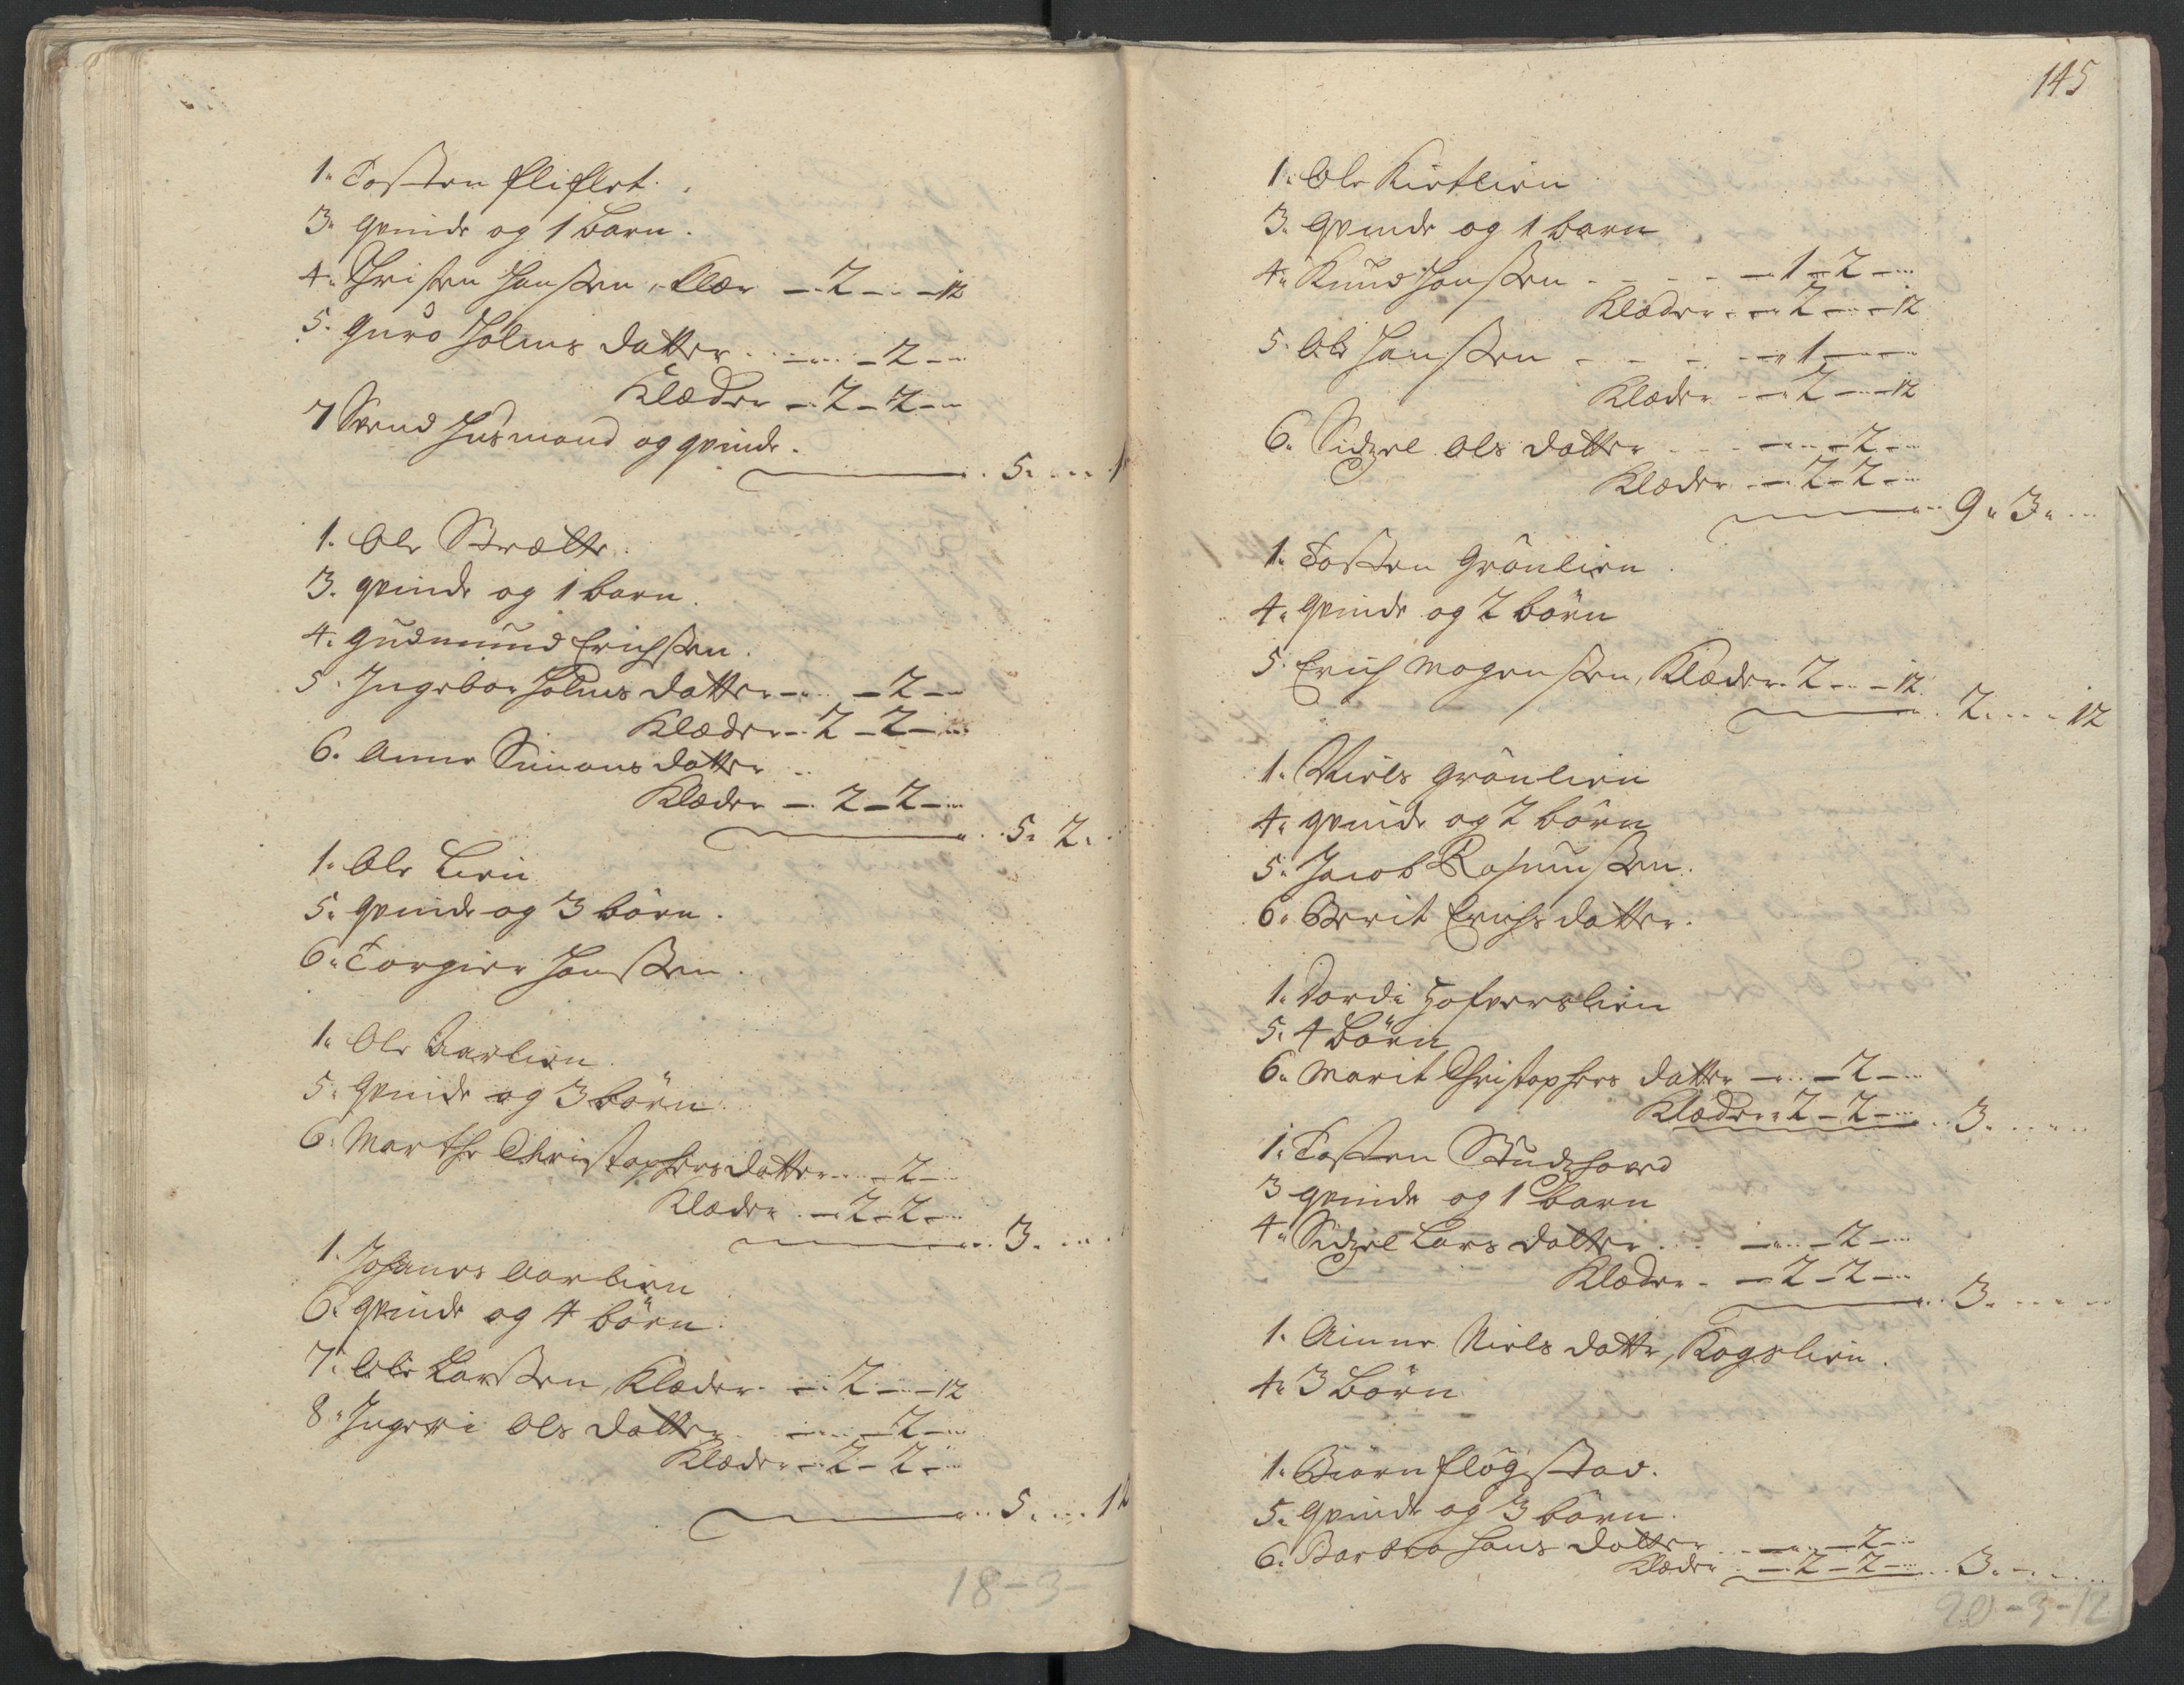 1. Tosten fliflet.
3. qvinde og 1 barn.
4. Christen Hansten, Klær — 2 — — 12
5. Guro Holms datter — — 2 —
Klæder — 2 — 2 —
7 Svend Husmand og qvinde.
5. — 1
1. Ole Strætte.
3. qvinde og 1 barn.
4. Gudmund Erichsen.
5. Ingebor Holms datter — — 2 —
Klæder — 2 — 2 —
6. Anne Simons datter
Klæder — 2 — 2 —
5. 2.
1. Ole Lien
5. qvinde og 3 börn.
6. Torgier Hansten.
1. Ole Aarlien
5. qvinde og 3 börn.
6. Marthe Christophers datter — 2 —
Klæder — 2 — 2 —
3.
1. Johanes Aarlien
6. qvinde og 4 börn.
7. Ole Larsten, Klæder — 2 — — 12
8. Ingeri Ols datter — — 2 —
Klæder — 2 — 2 —
5. — 12
18 - 3 -
145
1. Ole Kirtlien
3. qvinde og 1 barn
4. Knud Hansten — 1 — 2 —
Klæder — 2 — — 12
5. Ole Hansten — 1 — —
Klæder — 2 — — 12
6. Sidzel Ols datter — — 2 —
Klæder — 2 — 2 —
9. 3.
1. Tosten Grönlien
4. qvinde og 2 börn
5. Erich Mogensten, Klæder 2 — — 12
2. — 12
1. Niels Grönlien
4. qvinde og 2 börn
5. Jacob Rasmusten.
6. Berit Erichs datter.
1. Dordi Hofverslien
5. 4 Börn
6. Marit Christophers datter — — 2 —
Klæder 2 — 2 — 3.
1. Tosten Studshoved
3 qvinde og 1 barn
4. Sidzel Lars datter — — 2 —
Klæder — 2 — 2 —
3.
1. Anne Niels datter, Kogslien.
4. 3 Börn
1. Biörn flögstad.
5. qvinde og 3 börn.
6. Barbra Hans datter — — 2 —
Klæder — 2 — 2 — 3.
20 - 3 - 12